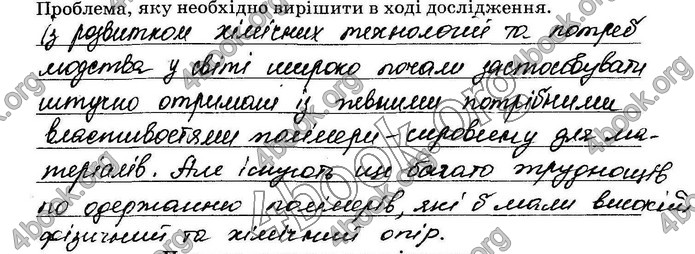 Проблема, яку необхідно вирішити в ході дослідження.
Із розвитком хімічних технологій та потреб
людства у світі широко почали застосовувати
штучно отримані із певними потрібними
властивостями полімери - сировину для ма-
теріалів. Але існують ще багато труднощів
по одержанню полімерів, які б мали високий
фізичний та хімічний опір.
4book.org